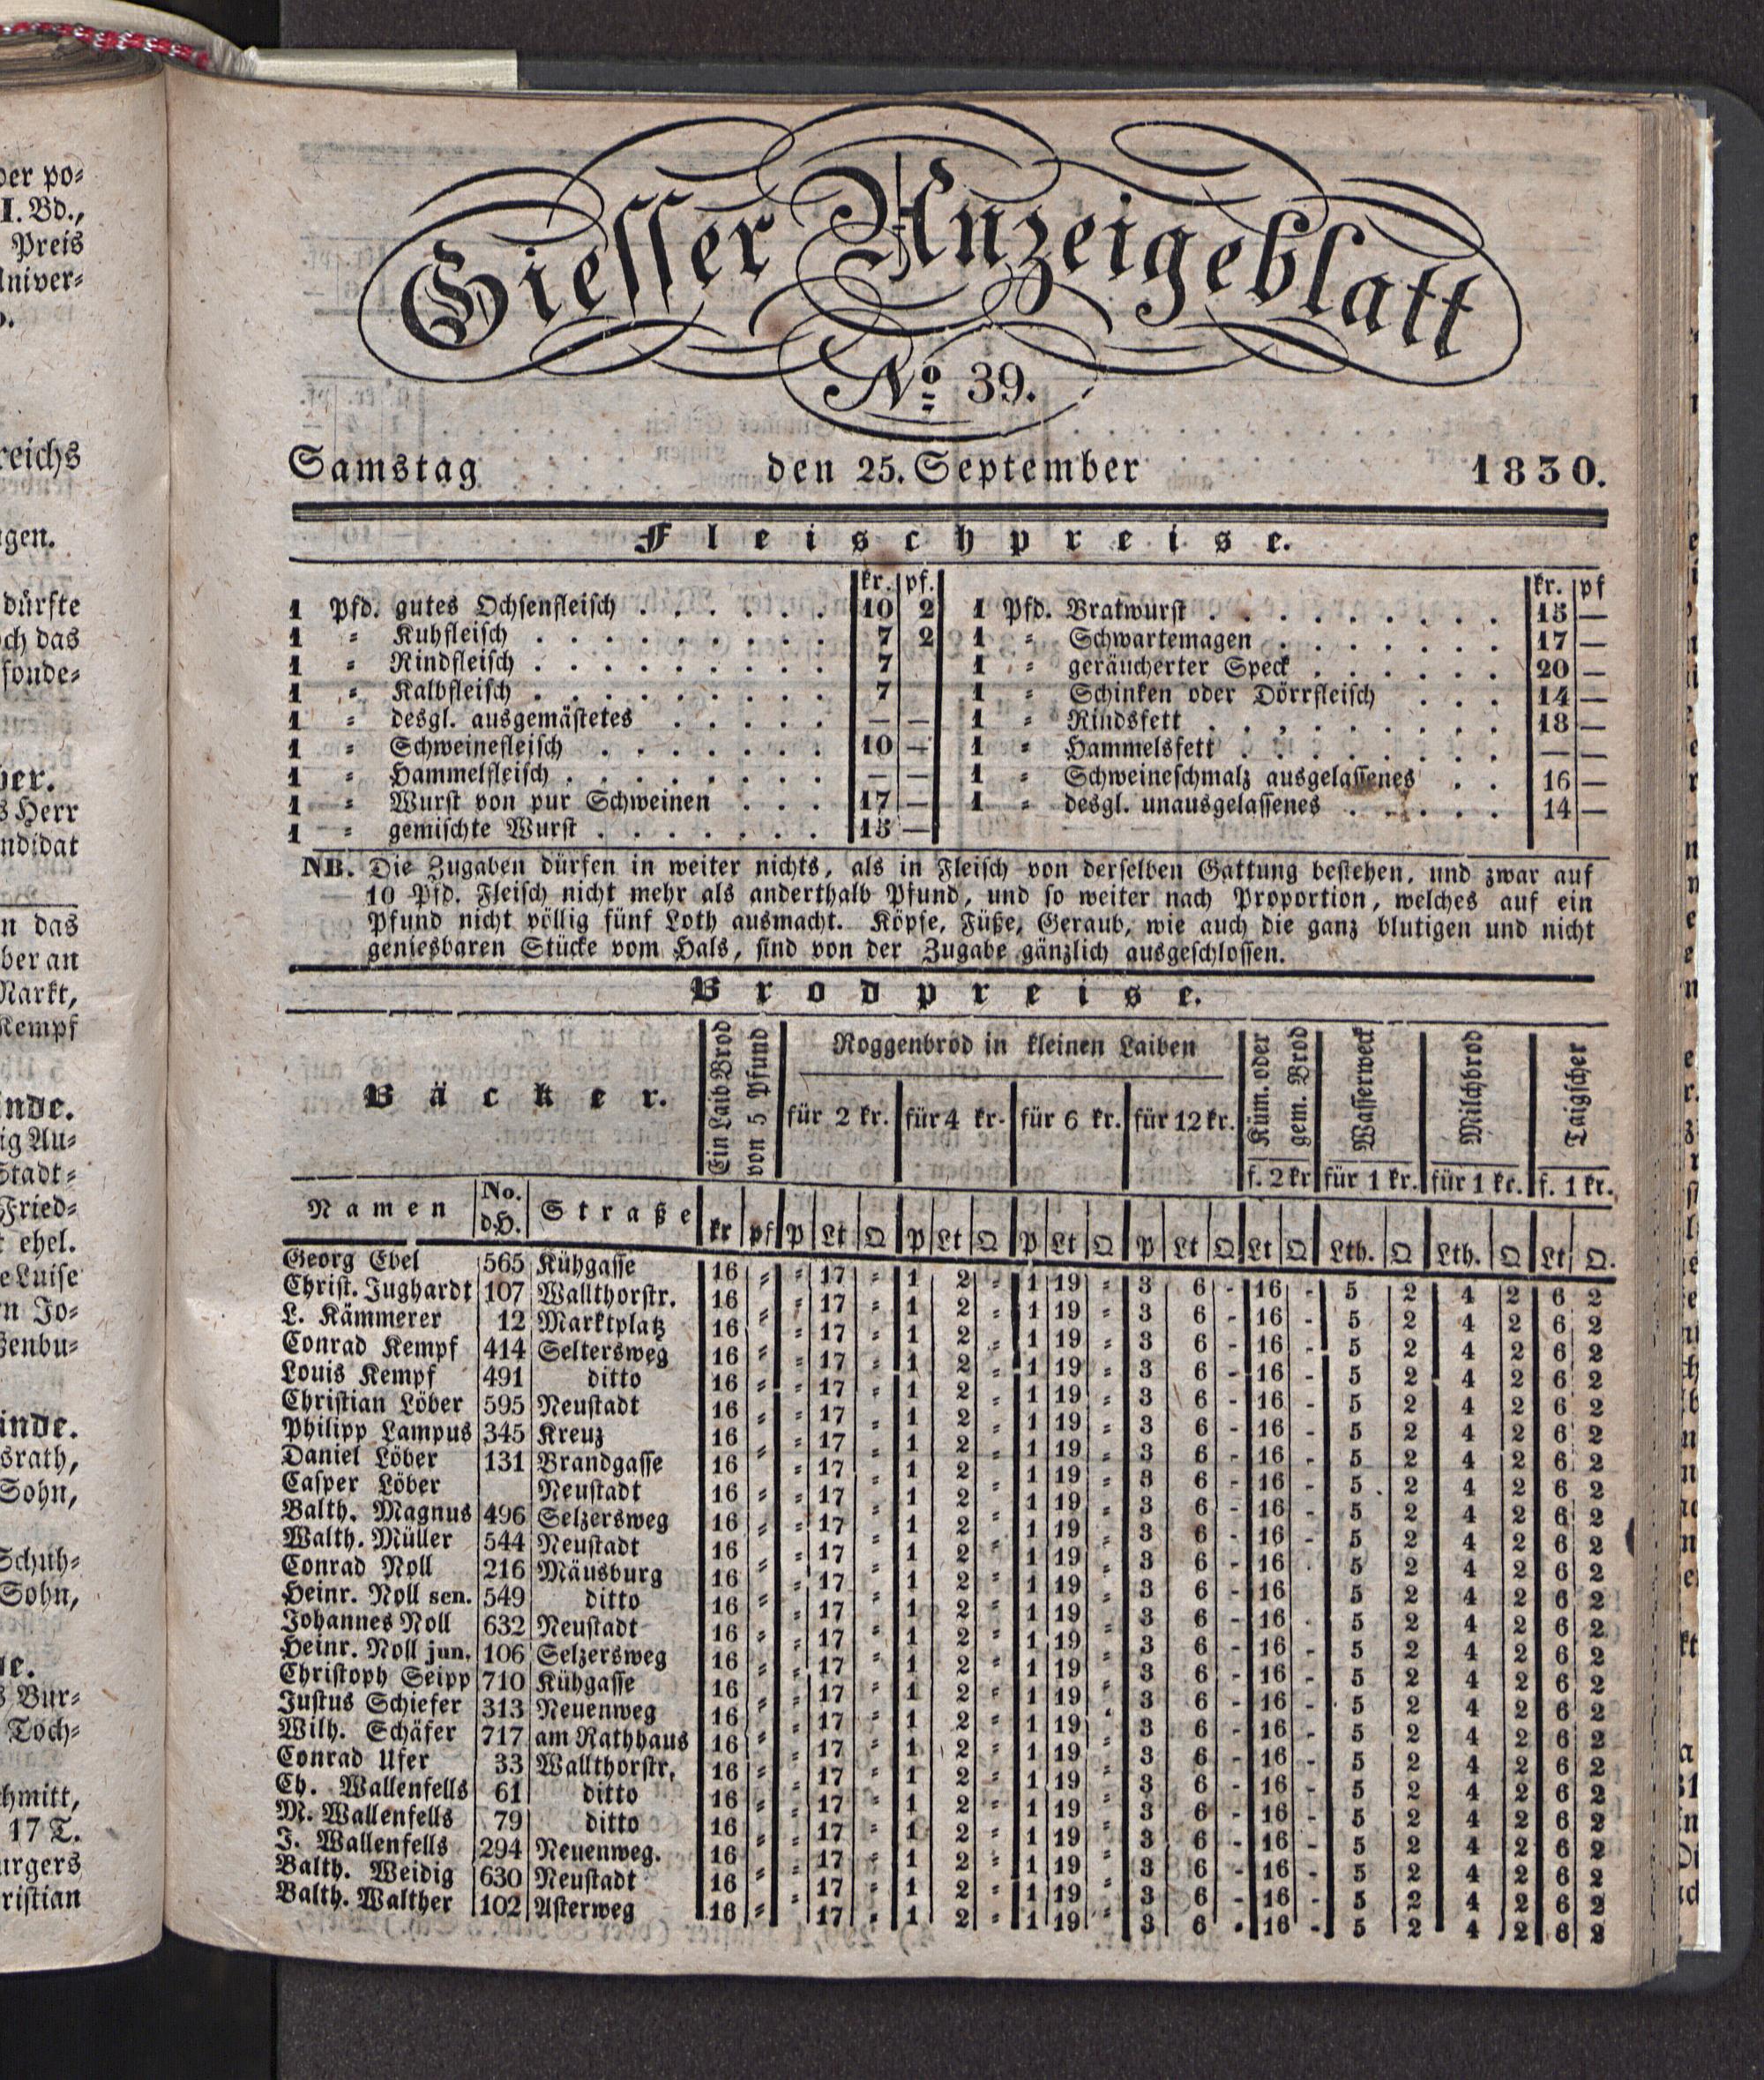 der po⸗
I. Bd.,
Preis
Univer⸗
reichs
gen.
dürfte
och das
sonde⸗
ber.
s Herr
ndidat
n das
ber an
Markt,
Kempf
inde.
ig Au⸗
Stadt⸗
Fried⸗
t ehel.
e Luise
n Jo⸗
ßenbu⸗
inde.
srath,
Sohn,
Schuh⸗
Sohn,
s Bur⸗
Töch⸗
hmitt,
17 T.
urgers
ristian
Giesser Anzeigeblatt
No 39.
Samstag den 25. September 1830.
Fleischpreise.
kr. pf. kr. pf
1 Pfd. gutes Ochsenfleisch . . . . . . 10 2 1 Pfd. Bratwurst . . . . . . . . 15 —
1 ⸗ Kuhfleisch . . . . . . . . . 7 2 1 ⸗ Schwartemagen . . . . . . 17 —
1 ⸗ Rindfleisch . . . . . . . . . 7 1 ⸗ geräucherter Speck . . . . . 20 —
1 ⸗ Kalbfleisch . . . . . . . . . 7 1 ⸗ Schinken oder Dörrfleisch . . . 14 —
1 ⸗ desgl. ausgemästetes . . . . . — — 1 ⸗ Rindsfett . . . . . . . . 18 —
1 ⸗ Schweinefleisch . . . . . . . 10 — 1 ⸗ Hammelsfett . . . . . . . — —
1 ⸗ Hammelfleisch . . . . . . . . — — 1 ⸗ Schweineschmalz ausgelassenes . . 16 —
1 ⸗ Wurst von pur Schweinen . . . 17 — 1 ⸗ desgl. unausgelassenes . . . . . 14 —
1 ⸗ gemischte Wurst . . . . . . . 15 —
NB. Die Zugaben dürfen in weiter nichts, als in Fleisch von derselben Gattung bestehen, und zwar auf
10 Pfd. Fleisch nicht mehr als anderthalb Pfund, und so weiter nach Proportion, welches auf ein
Pfund nicht völlig fünf Loth ausmacht. Köpfe, Füße, Geraub, wie auch die ganz blutigen und nicht
geniesbaren Stücke vom Hals, sind von der Zugabe gänzlich ausgeschlossen.
Brodpreise.
Bäcker.
Ein Laib Brod
von 5 Pfund
Roggenbrod in kleinen Laiben
für 2 kr. für 4 kr. für 6 kr. für 12 kr.
Küm. oder
gem. Brod
f. 2 kr
Wasserweck
für 1 kr.
Milchbrod
für 1 kr.
Taigscher
f. 1 kr.
Namen No. d.H. Straße kr pf P Lt Q P Lt Q P Lt Q P Lt Q Lt Q Lth. Q Lth. Q Lt Q.
Georg Ebel 565 Kühgasse 16 ⸗ ⸗ 17 ⸗ 1 2 ⸗ 1 19 ⸗ 3 6 - 16 - 5 2 4 2 6 2
Christ. Jughardt 107 Wallthorstr. 16 ⸗ ⸗ 17 ⸗ 1 2 ⸗ 1 19 ⸗ 3 6 - 16 - 5 2 4 2 6 2
L. Kämmerer 12 Marktplatz 16 ⸗ ⸗ 17 ⸗ 1 2 ⸗ 1 19 ⸗ 3 6 - 16 - 5 2 4 2 6 2
Conrad Kempf 414 Seltersweg 16 ⸗ ⸗ 17 ⸗ 1 2 ⸗ 1 19 ⸗ 3 6 - 16 - 5 2 4 2 6 2
Louis Kempf 491 ditto 16 ⸗ ⸗ 17 ⸗ 1 2 ⸗ 1 19 ⸗ 3 6 - 16 - 5 2 4 2 6 2
Christian Löber 595 Neustadt 16 ⸗ ⸗ 17 ⸗ 1 2 ⸗ 1 19 ⸗ 3 6 - 16 - 5 2 4 2 6 2
Philipp Lampus 345 Kreuz 16 ⸗ ⸗ 17 ⸗ 1 2 ⸗ 1 19 ⸗ 3 6 - 16 - 5 2 4 2 6 2
Daniel Löber 131 Brandgasse 16 ⸗ ⸗ 17 ⸗ 1 2 ⸗ 1 19 ⸗ 3 6 - 16 - 5 2 4 2 6 2
Casper Löber Neustadt 16 ⸗ ⸗ 17 ⸗ 1 2 ⸗ 1 19 ⸗ 3 6 - 16 - 5 2 4 2 6 2
Balth. Magnus 496 Selzersweg 16 ⸗ ⸗ 17 ⸗ 1 2 ⸗ 1 19 ⸗ 3 6 - 16 - 5 2 4 2 6 2
Walth. Müller 544 Neustadt 16 ⸗ ⸗ 17 ⸗ 1 2 ⸗ 1 19 ⸗ 3 6 - 16 - 5 2 4 2 6 2
Conrad Noll 216 Mäusburg 16 ⸗ ⸗ 17 ⸗ 1 2 ⸗ 1 19 ⸗ 3 6 - 16 - 5 2 4 2 6 2
Heinr. Noll sen. 549 ditto 16 ⸗ ⸗ 17 ⸗ 1 2 ⸗ 1 19 ⸗ 3 6 - 16 - 5 2 4 2 6 2
Johannes Noll 632 Neustadt 16 ⸗ ⸗ 17 ⸗ 1 2 ⸗ 1 19 ⸗ 3 6 - 16 - 5 2 4 2 6 2
Heinr. Noll jun. 106 Selzersweg 16 ⸗ ⸗ 17 ⸗ 1 2 ⸗ 1 19 ⸗ 3 6 - 16 - 5 2 4 2 6 2
Christoph Seipp 710 Kühgasse 16 ⸗ ⸗ 17 ⸗ 1 2 ⸗ 1 19 ⸗ 3 6 - 16 - 5 2 4 2 6 2
Justus Schiefer 313 Neuenweg 16 ⸗ ⸗ 17 ⸗ 1 2 ⸗ 1 19 ⸗ 3 6 - 16 - 5 2 4 2 6 2
Wilh. Schäfer 717 am Rathhaus 16 ⸗ ⸗ 17 ⸗ 1 2 ⸗ 1 19 ⸗ 3 6 - 16 - 5 2 4 2 6 2
Conrad Ufer 33 Wallthorstr. 16 ⸗ ⸗ 17 ⸗ 1 2 ⸗ 1 19 ⸗ 3 6 - 16 - 5 2 4 2 6 2
Ch. Wallenfells 61 ditto 16 ⸗ ⸗ 17 ⸗ 1 2 ⸗ 1 19 ⸗ 3 6 - 16 - 5 2 4 2 6 2
M. Wallenfells 79 ditto 16 ⸗ ⸗ 17 ⸗ 1 2 ⸗ 1 19 ⸗ 3 6 - 16 - 5 2 4 2 6 2
J. Wallenfells 294 Neuenweg. 16 ⸗ ⸗ 17 ⸗ 1 2 ⸗ 1 19 ⸗ 3 6 - 16 - 5 2 4 2 6 2
Balth. Weidig 630 Neustadt 16 ⸗ ⸗ 17 ⸗ 1 2 ⸗ 1 19 ⸗ 3 6 - 16 - 5 2 4 2 6 2
Balth. Walther 102 Asterweg 16 ⸗ ⸗ 17 ⸗ 1 2 ⸗ 1 19 ⸗ 3 6 - 16 - 5 2 4 2 6 2